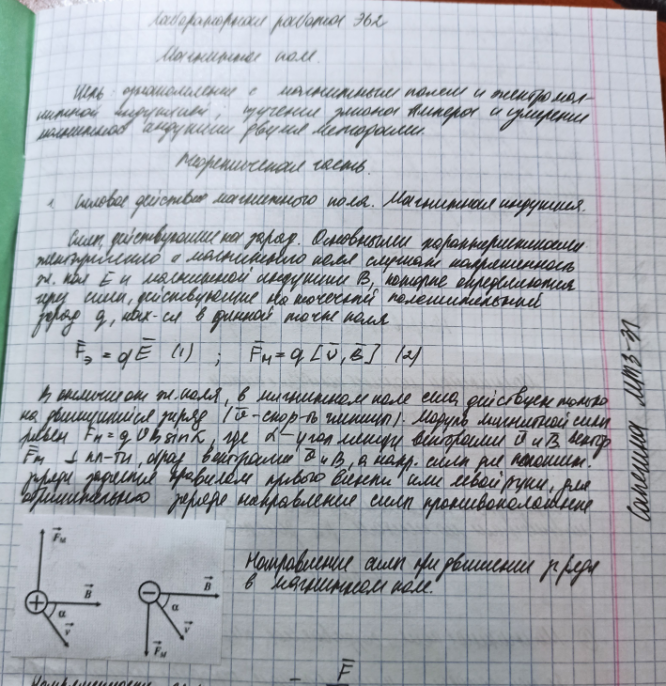 Лабораторная работа Э62
Магнитное поле.
Цель: ознакомление с магнитным полем и электромаг-
нитной индукцией, изучение закона Ампера и измерение
магнитной индукции двумя методами.
Теоретическая часть.
1. Силовое действие магнитного поля. Магнитная индукция.
Силы, действующие на заряд. Основными характеристиками
электрического и магнитного поля служат напряженность
эл. поля E и магнитной индукции B, которые определяются
через силы, действующие на точечный положительный
заряд q, нах-ся в данной точке поля
F̄э = qĒ (1) ; F̄м = q [v̄, B̄] (2)
В отличие от эл. поля, в магнитном поле сила действует только
на движущийся заряд (v̄ - скор-ть частицы). Модуль магнитной силы
равен Fм = q v B sin α, где α - угол между векторами v̄ и B̄ вектор
F̄м ⊥ пл-ти, образ векторами v̄ и B̄, а напр. силы для положит.
заряда задается правилом правого винта или левой руки, для
отрицательного заряда направление силы противоположное
F⃗м B⃗ α v⃗ +
B⃗ α v⃗ F⃗м −
Направление силы при движении заряда
в магнитном поле.
F̄
Сапешина МТЗ-31